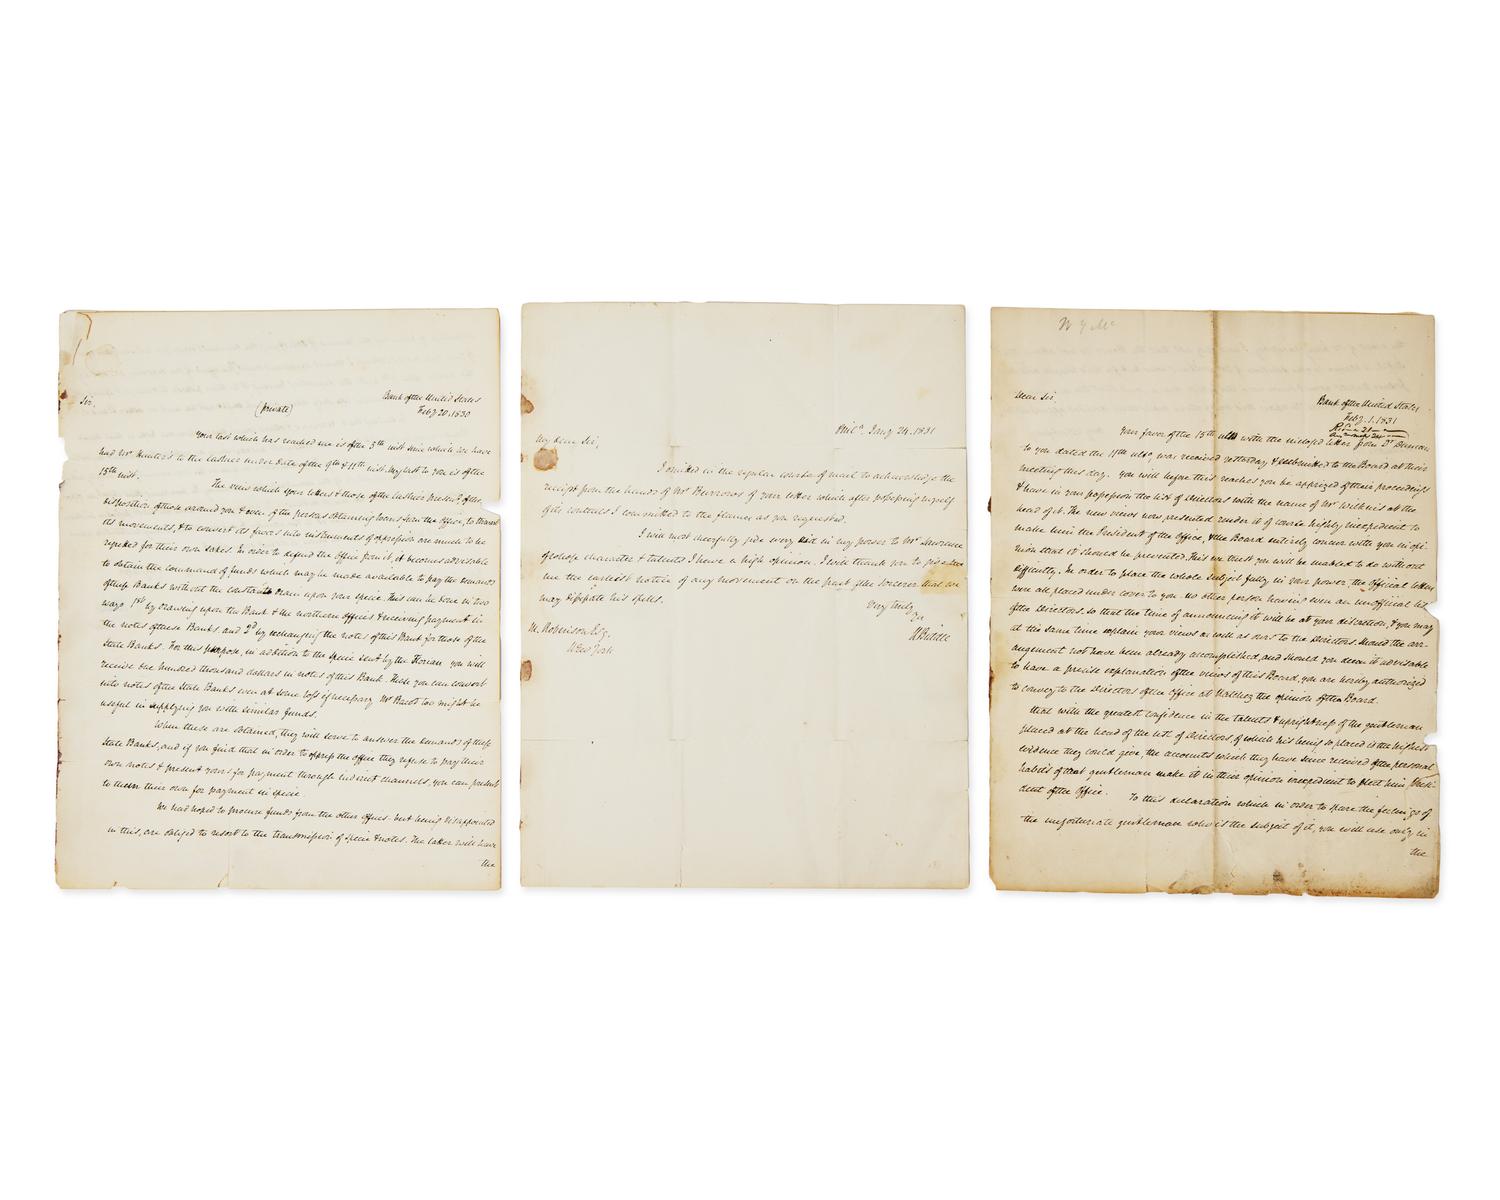 Bank of the United States
Feby 20. 1830
Sir,
(private)
Your last which has reached me is of the 5th inst since which we have
had Mr Hunter's to the Cashier under date of the 9th & 11th inst. My last to you is of the
15th inst.
The view which your letters & those of the Cashier present, of the
disposition of those around you & even of the persons obtaining loans from the Office, to thwart
its movements, & to convert its favors into instruments of oppression are much to be
regretted for their own sakes. In order to defend the Office from it, it becomes advisable
to obtain the command of funds which may be made available to pay the demands
of these Banks without the constant drain upon your specie. This can be done in two
ways 1st by drawing upon the Bank & the northern offices & receiving payment in
the notes of these Banks and 2d by exchanging the notes of this Bank for those of the
State Banks. For this purpose, in addition to the specie sent by the Florian you will
receive one hundred thousand dollars in notes of this Bank. These you can convert
into notes of the State Banks even at some loss if necessary. Mr Bacot too might be
useful in supplying you with similar funds.
When these are obtained, they will serve to answer the demands of these
State Banks, and if you find that in order to oppress the office they refuse to pay their
own notes & present yours for payment through indirect channels, you can present
to them their own for payment in specie.
We had hoped to procure funds from the other offices but being disappointed
in this, are obliged to resort to the transmission of specie & notes. The latter will have
the
Phila. Jany 24. 1831
My dear Sir,
I omitted in the regular course of mail to acknowledge the
receipt from the hands of Mr Burrows of your letter which after possessing myself
of its contents I committed to the flames as you requested.
I will most cheerfully give every aid in my power to Mr Lawrence
of whose character & talents I have a high opinion. I will thank you to give
me the earliest notice of any movement on the part of the sorcerer that we
may dissipate his spells.
Very truly
Yrs
N Biddle
M. Robinson Esq.
New York
Dear Sir,
Bank of the United States
Feby. 1. 1831
Your favor of the 15th ulto with the inclosed letter from Dr Duncan
to you dated the 11th ulto, was received yesterday & submitted to the Board at their
meeting this day. You will before this reaches you be apprized of their proceedings
& have in your possession the list of Directors with the name of Mr Wilkins at the
head of it. The new views now presented render it of course highly inexpedient to
make him the President of the Office, & the Board entirely concur with you in opi-
nion that it should be prevented. This we trust you will be enabled to do without
difficulty. In order to place the whole subject fully in your power, the Official letters
were all placed under cover to you. no other person having even an unofficial list
of the Directors. so that the time of announcing it will be at your discretion, & you may
at the same time explain your views as well as ours to the Directors. Should the arr-
angement not have been already accomplished, and should you deem it advisable
to have a precise explanation of the views of this Board, you are hereby authorized
to convey to the Directors of the Office at Natchez the opinion of the Board.
that with the greatest confidence in the talents & uprightness of the gentleman
placed at the head of the list of Directors, of which his being so placed is the highest
evidence they could give, the accounts which they have since received of the personal
habits of that gentleman make it in their opinion inexpedient to elect him Presi-
dent of the Office. To this declaration which in order to spare the feelings of
the unfortunate gentleman who is the subject of it, you will use only in
the